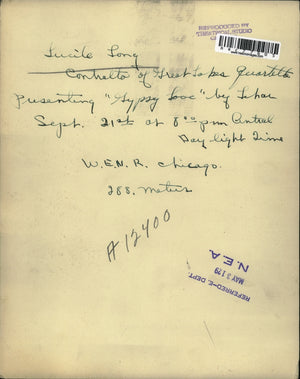 Lucile Long
Contralto of Great Lakes Quartette
presenting "Gypsy Love" by Lehar
Sept. 21st at 8:00 pm Central
Daylight Time
W.E.N.R. Chicago.
288 meters
A12400
REFERRED-E. DEPT.
MAY 3 1 79
N.E.A.